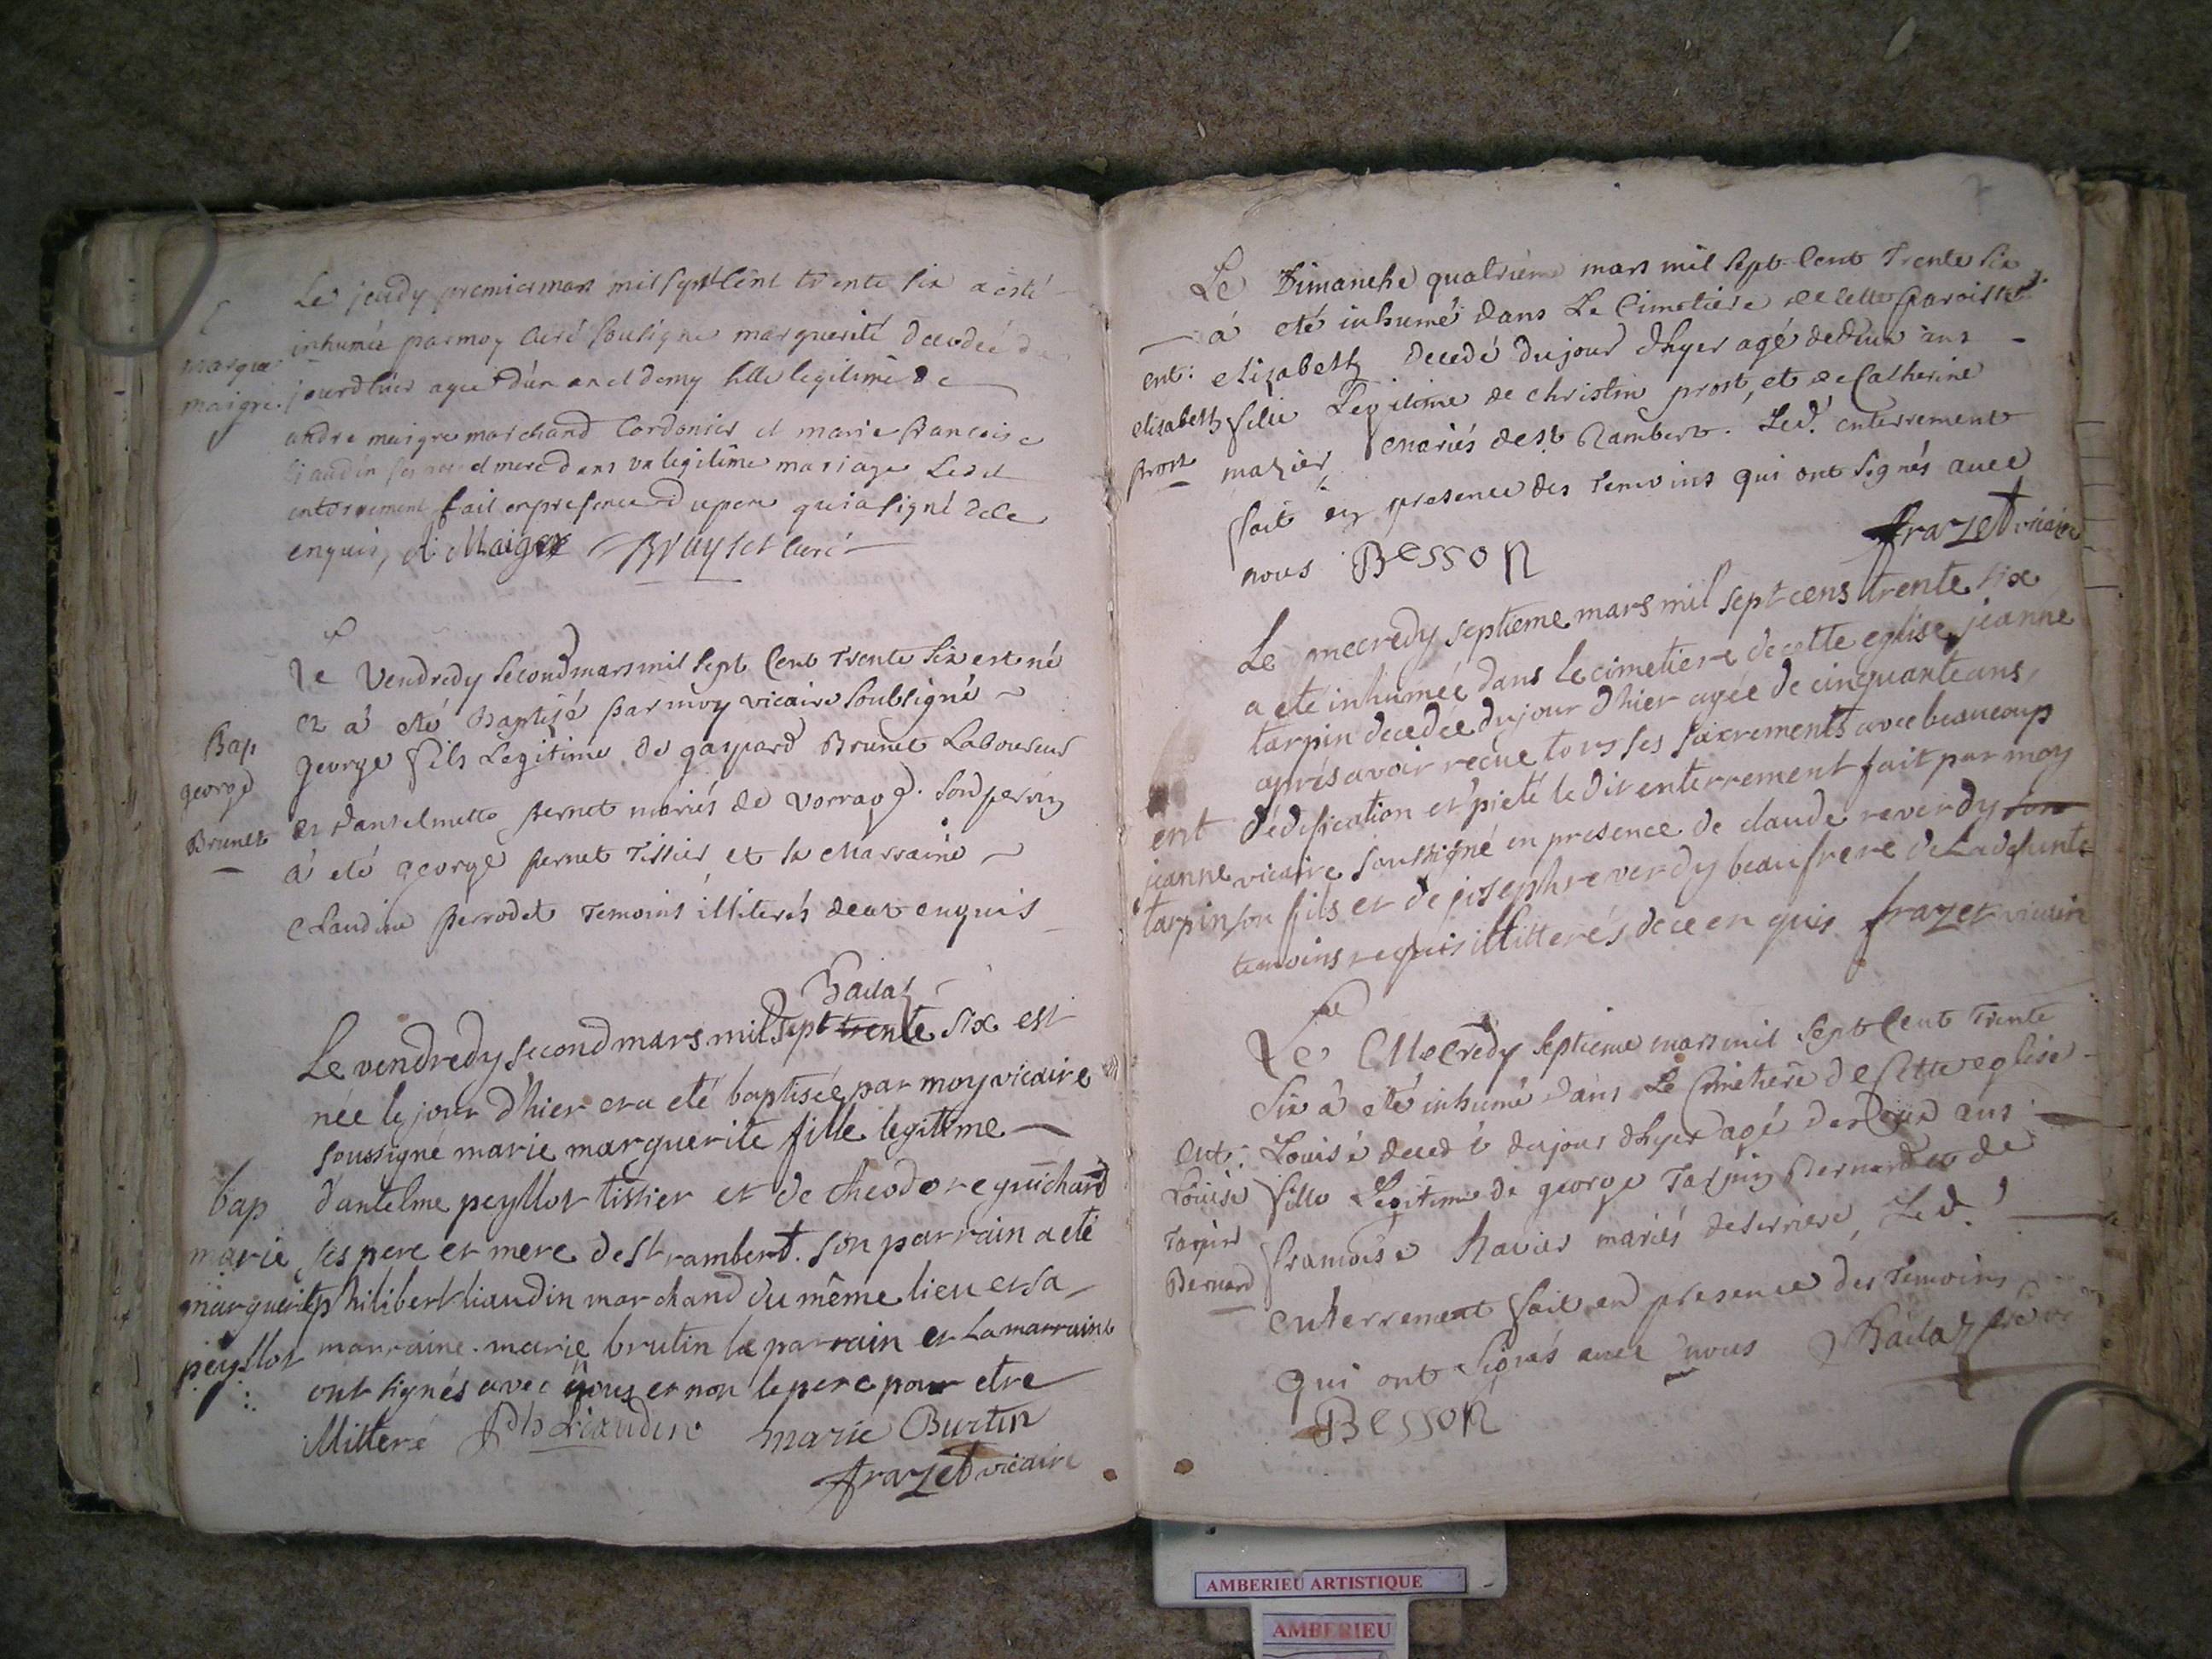 Le jeudy premier mars mil sept cent trente six a esté
inhumée par moy curé sousigné marguerite decedée
marguer
maigre
jourdhier agée d'un an et demy fille legitime de
andre maigre marchand Cordonier et marie francoise
liaudin ses pere et mere dans un legitime mariage Ledit
enterrement fait en presence du pere qui a signé de ce
enquis, A Maigre Bruyset curé
Le Vendredy second mars mil sept Cent Trente Six est né
et à eté Baptisé par moy vicaire soubsigné
Bap
george
Brunet
george fils Legitime de gaspard Brunet Laboureur
et d'anselmette pernet mariés de Vorrage. Son perain
à eté george pernet Tissier et la Marraine
Claudine perrodet Temoins illiterés de ce enquis
Bailat
Le vendredy second mars mil sept trente six est
née le jour d'hier et a eté baptisée par moy vicaire
soussigné marie marguerite fille legitime
bap
marie
marguerite
peyllot
d'antelme peyllot tissier et de theodore guichard
ses pere et mere de St rambert. son parrain a eté
philibert liaudin marchand du même lieu et sa
marraine marie brutin le parrain et la marraine
ont signés avec nous et non le pere pour etre
illitteré Ph Liaudin marie Burtin
frazet vicaire
Le Dimanche quatrième mars mil sept Cent Trente Six
à eté inhumé dans Le Cimetière de cette paroisse
ent:
elisabeth
prost
elizabeth decedé du jour d'hyer agé de deux ans
fille Legitime de christin prost, et de Catherine
mazier mariés de St. Rambert. Led.t enterrement
fait en presence des Temoins qui ont signés avec
nous Besson frazet vicaire
Le mecredy septieme mars mil sept cens trente six
a eté inhumée dans le cimetiere de cette eglise jeanne
tarpin decedée du jour d'hier agée de cinquante ans,
après avoir reçue tous ses sacrements avec beaucoup
ent
jeanne
tarpin
d'édification et pieté le dit enterrement fait par moy
vicaire soussigné en presence de claude reverdy son
son fils et de joseph reverdy beaufrere de La defunte
temoins requis illitterés de ce enquis frazet vicaire
Le Mecredy septieme mars mil sept Cent Trente
Six à eté inhumé dans Le Cimetière de Cette eglise
ent:
Louise
Tarpin
Bernard
Louise decedé du jour d'hyer agé de deux ans
fille Legitime de george Tarpin Bernard et de
francoise Ravier mariés de serriere, Led.t
enterrement fait en presence des Temoins
qui ont signés avec nous Bailat
Besson
AMBERIEU ARTISTIQUE
AMBERIEU